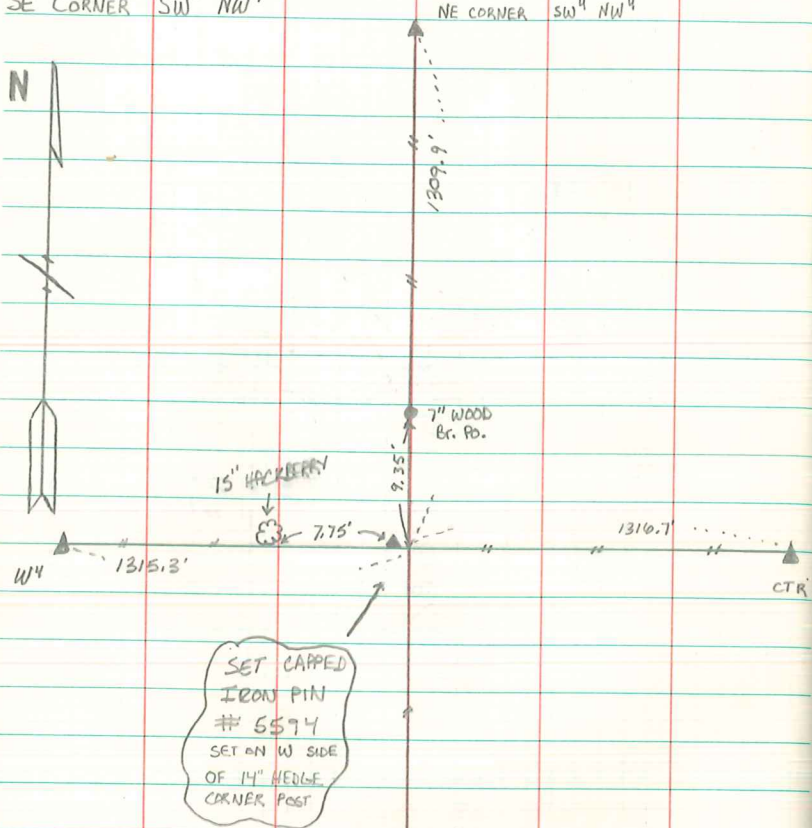 SE CORNER SW NW
NE CORNER SW4 NW4
N
1309.9'
7" WOOD
Br. Po.
9.35'
15" HACKBERRY
7.75'
1316.7'
W4
1315.3'
CTR
SET CAPPED
IRON PIN
# 5594
SET ON W SIDE
OF 14" HEDGE
CORNER POST